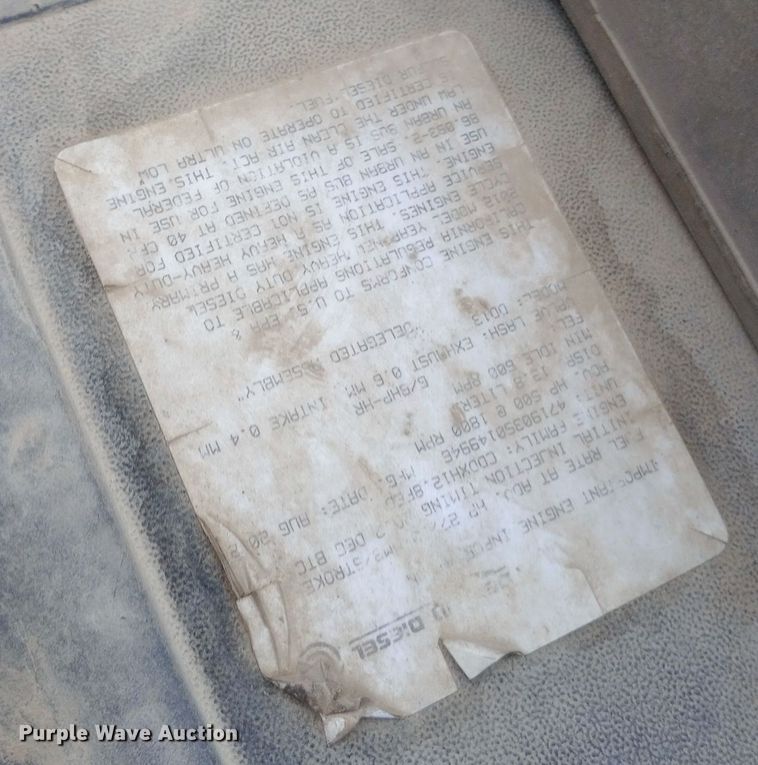 DIESEL
IMPORTANT ENGINE
FUEL RATE AT ADV. HP MM3/STROKE
INITIAL INJECTION TIMING DEG BTC
ENGINE FAMILY: CDDXH12.8FED MFG DATE: AUG 20
UNIT: 471903S0149946
ADV. HP 500 @ 1800 RPM
DISP 12.8 LITER
MIN IDLE 600 RPM
FEL G/BHP-HR
VALVE LASH: EXHAUST 0.6 MM INTAKE 0.4 MM
MODEL: DD13 "DELEGATED ASSEMBLY"
THIS ENGINE CONFORMS TO U.S. EPA &
CALIFORNIA REGULATIONS APPLICABLE TO
MODEL YEAR NEW HEAVY DUTY DIESEL
CYCLE ENGINES. THIS ENGINE HAS A PRIMARY
SERVICE APPLICATION AS A HEAVY HEAVY-DUTY
ENGINE. THIS ENGINE IS NOT CERTIFIED FOR
USE IN AN URBAN BUS AS DEFINED AT 40 CFR
86.093-2. SALE OF THIS ENGINE FOR USE IN
AN URBAN BUS IS A VIOLATION OF FEDERAL
LAW UNDER THE CLEAN AIR ACT. THIS ENGINE
IS CERTIFIED TO OPERATE ON ULTRA LOW
DIESEL FUEL.
Purple Wave Auction